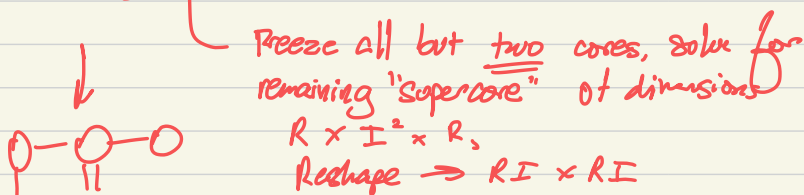 Freeze all but two cores, solve for
remaining "supercore" of dimensions
R × I² × R,
Reshape → RI × RI